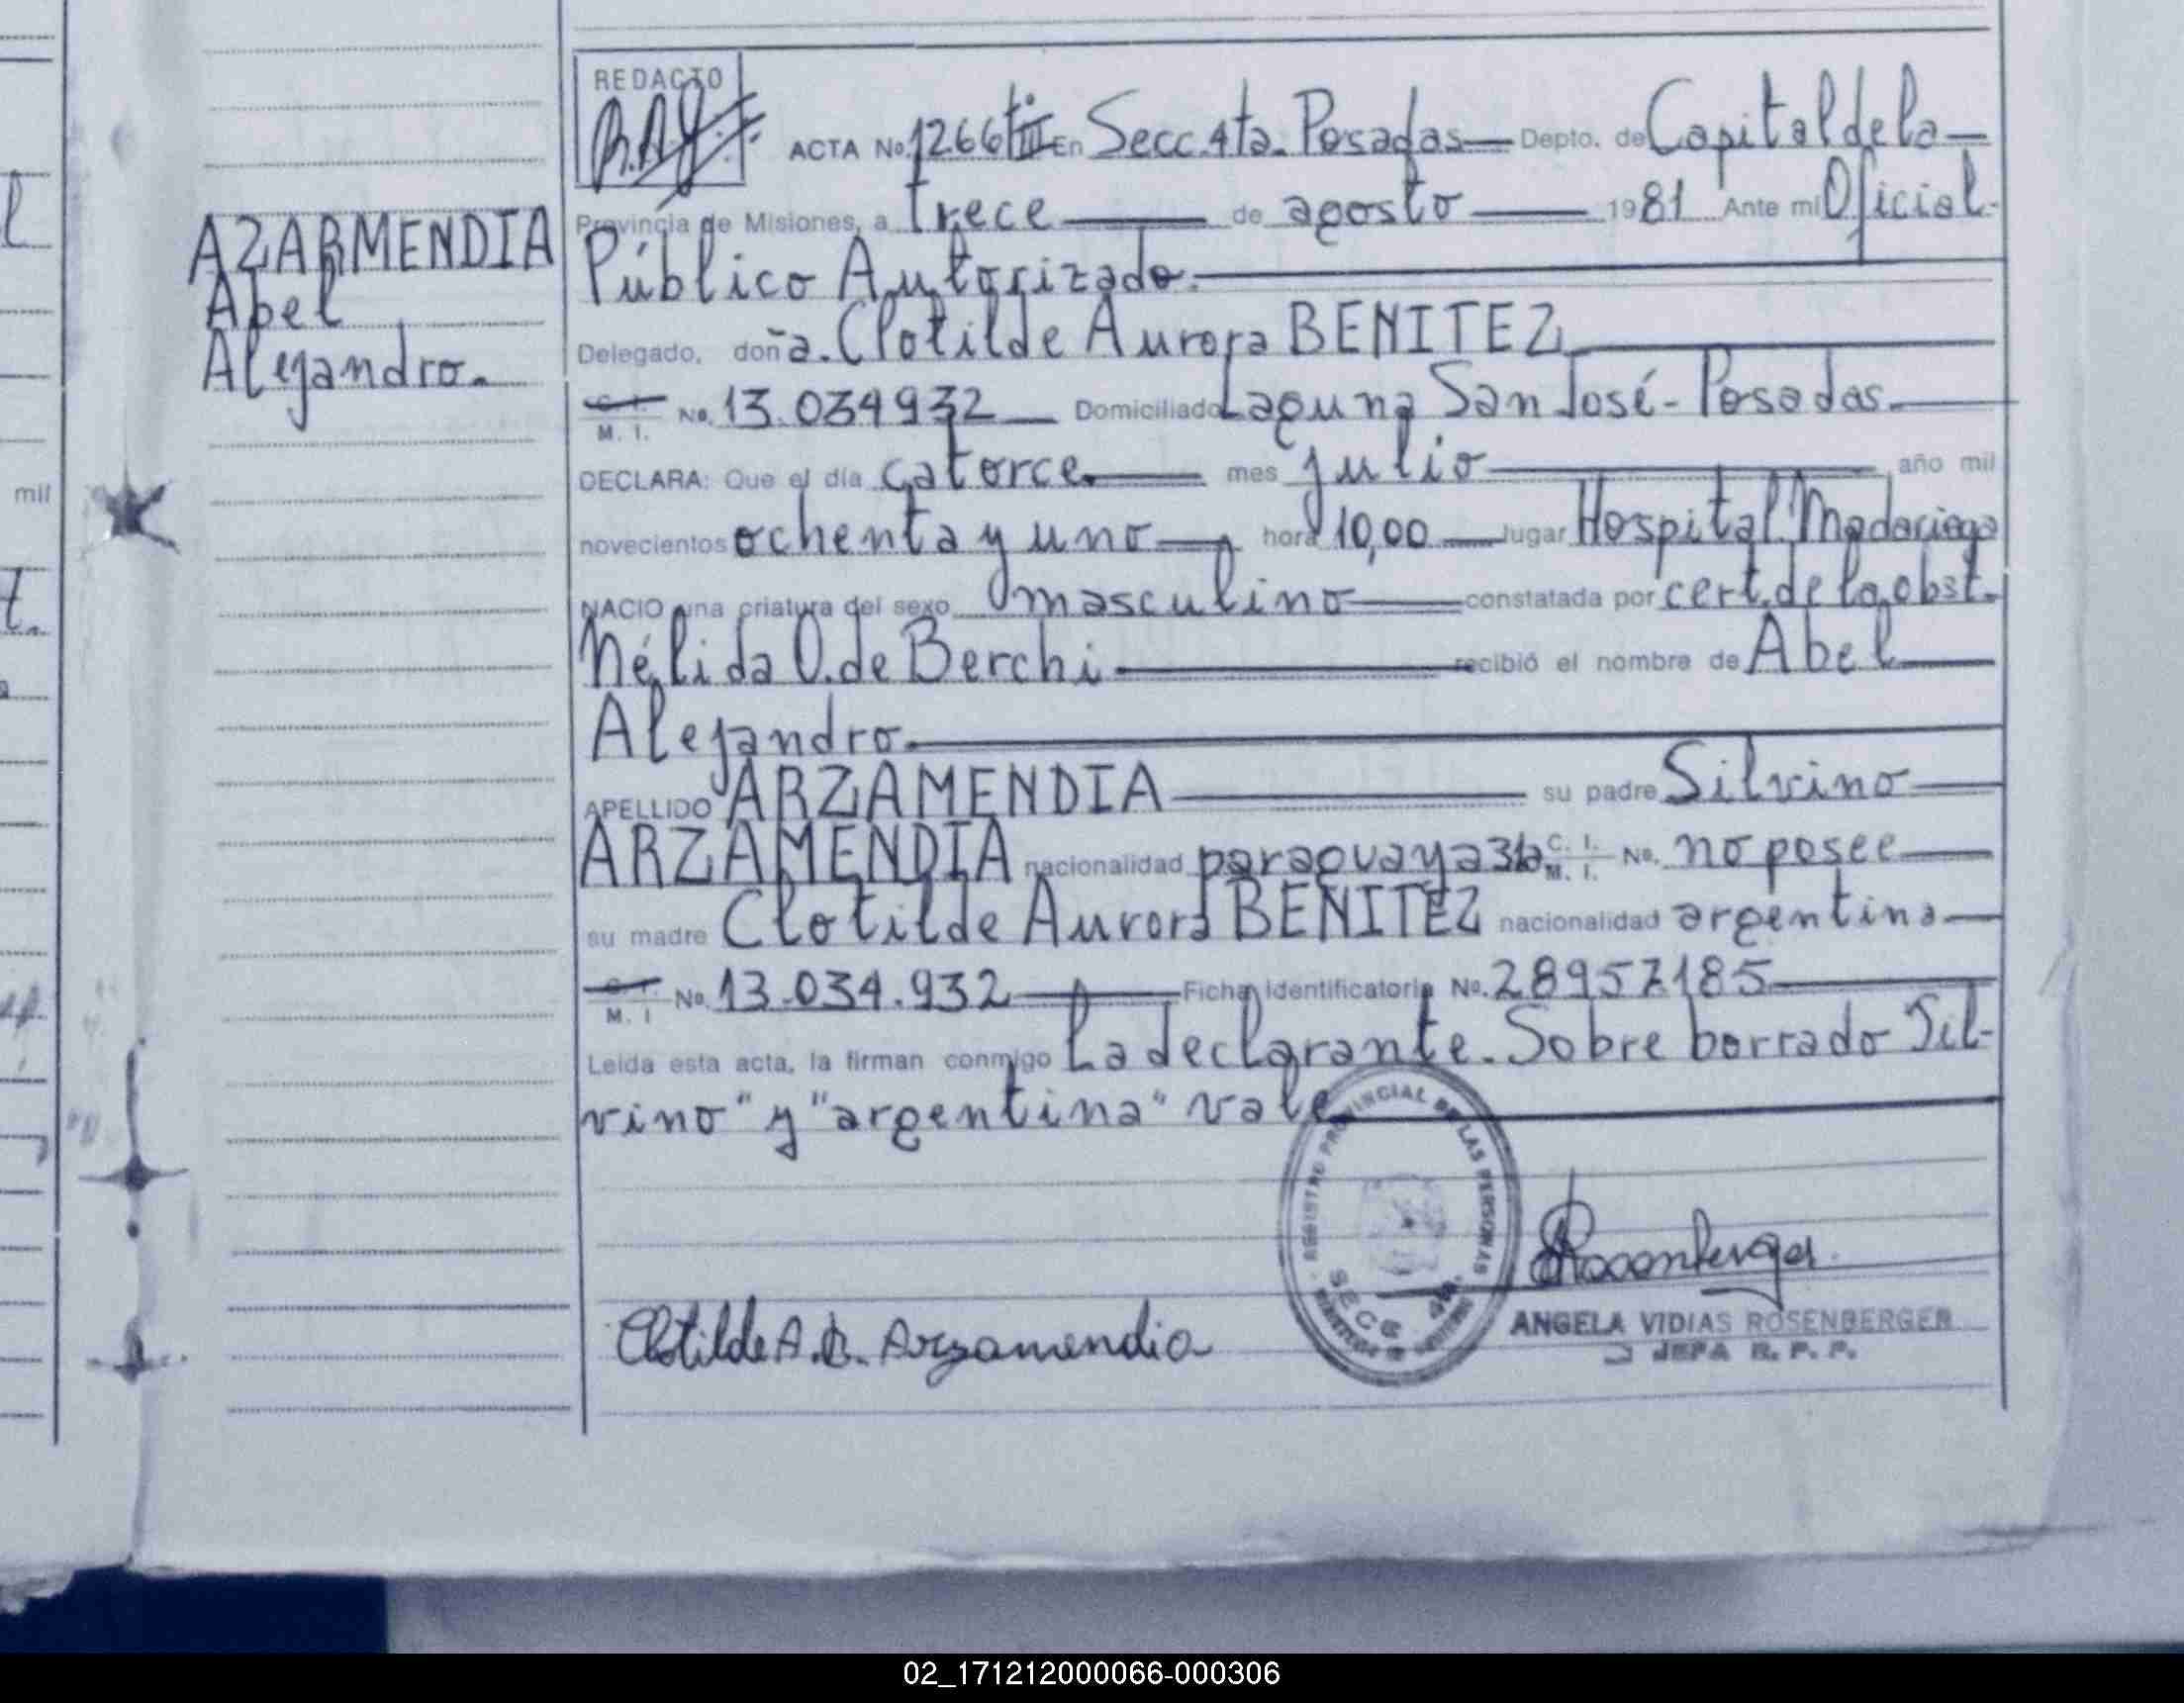 REDACTO
ACTA No. 1266 tº III En Secc. 4ta. Posadas Depto. de Capital de la
Provincia de Misiones, a trece de agosto 1981 Ante mi Oficial
Público Autorizado.
Delegado, doña. Clotilde Aurora BENITEZ
C. I. M. I. No. 13.034932 Domiciliado Laguna San José - Posadas.
DECLARA: Que el día catorce. mes julio año mil
novecientos ochenta y uno hora 10,00 lugar Hospital Madariaga
NACIO una criatura del sexo masculino constatada por cert. de la obst.
Nélida O. de Berchi recibió el nombre de Abel
Alejandro.
APELLIDO ARZAMENDIA su padre Silvino
ARZAMENDIA nacionalidad paraguaya C. I. M. I. No. no posee
su madre Clotilde Aurora BENITEZ nacionalidad argentina
C. I. M. I No. 13.034.932 Ficha identificatoria No. 28957185
Leida esta acta, la firman conmigo La declarante. Sobre borrado Sil-
vino" y "argentina" vale
AZARMENDIA
Abel
Alejandro.
REGISTRO PROVINCIAL DE LAS PERSONAS
SECC 4ta.
Clotilde A. B. Arzamendia
Rosenberger
ANGELA VIDIAS ROSENBERGER
JEFA R. P. P.
mil
02_171212000066-000306